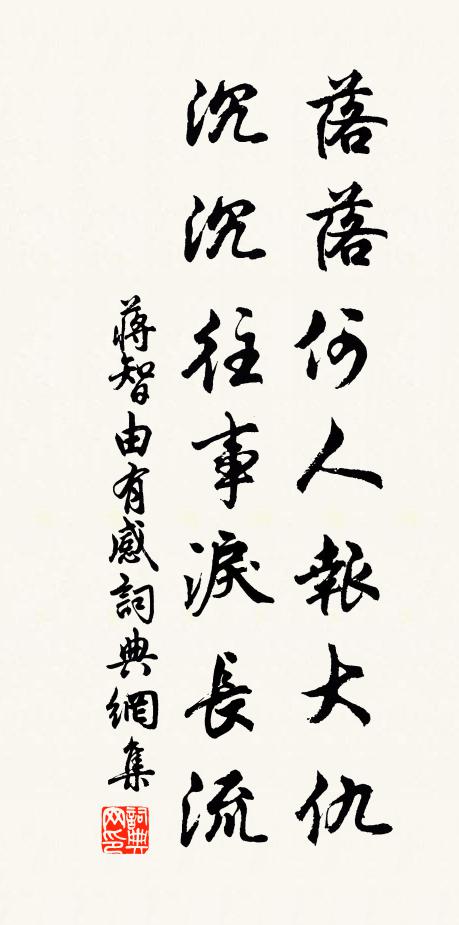 落落何人報大仇
沉沉往事淚長流
蔣智由有感詞典網集
詞典网印